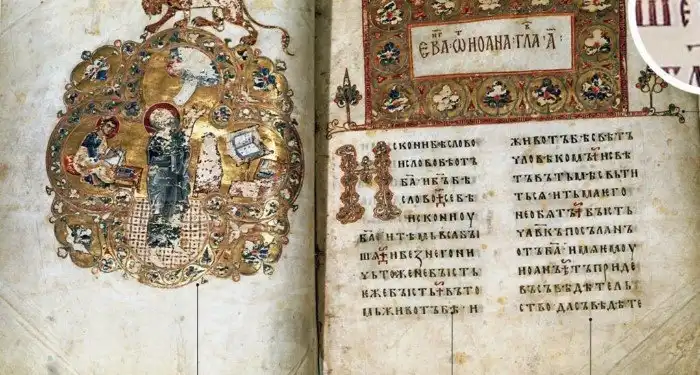 ЕВ҃А ѠИОАНА·ГЛА·А҃:
ИСКОНИБѢСЛОВО
ИСЛОВОБѢОТЪ
БА҃ИБ҃ЪБѢ
СЛОВО СЕБѢ
ИСКОНИОУ
БА҃ИТѢМЬВЬСꙖБꙐ
ШѦ ИБЕЗНЕГОНИ
ЧЬТОЖЕНЕБꙐСТЬ
ЕЖЕБꙐСТЬ ВЪТО
МЬЖИВОТЪБѢ И
ЖИВОТЪБѢСВѢТЪ
ЧЛОВѢКОМЪ ИСВѢ
ТЪВЪТЬМѢСВЬТИ
ТЬСѦ ИТЬМАѤГО
НЕОБѦТЪ БꙐСТЬ
ЧЛ҃ВКЪПОСЪЛАНЪ
ОТЪБА҃ ИМѦѤМОУ
ИОАНЪ ТЪПРИДЕ
ВЪСЪВѢДѢТЕЛЬ
СТВОДАСЪВѢДѢТЕ